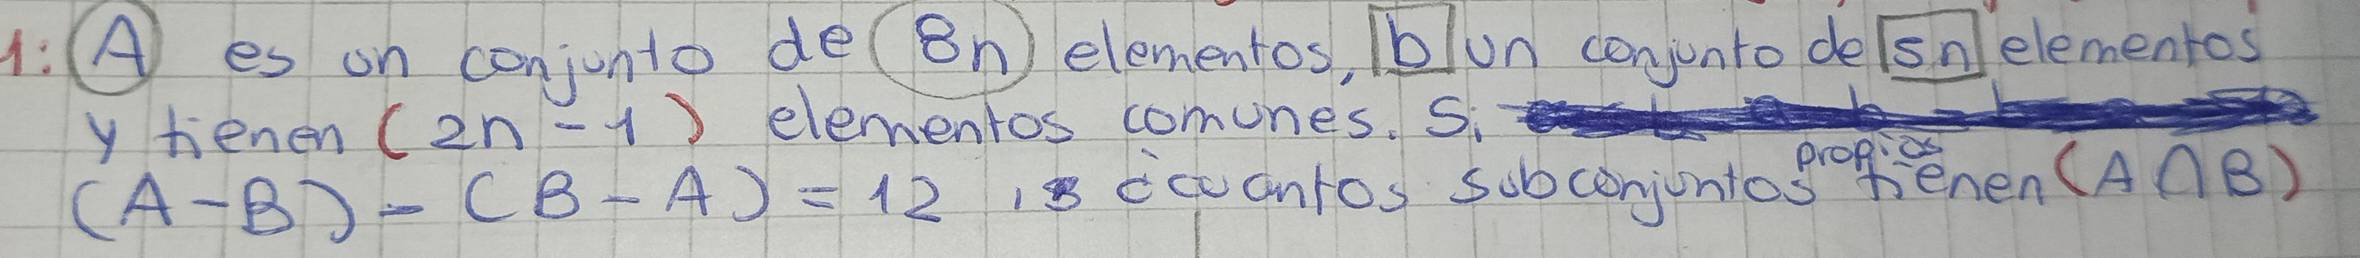 1: A es un conjunto de 8n elementos, b un conjunto de 5n elementos
y tienen (2n - 1) elementos comunes. Si
propios
(A - B) - (B - A) = 12, ¿cuantos subconjuntos tienen (A ∩ B)